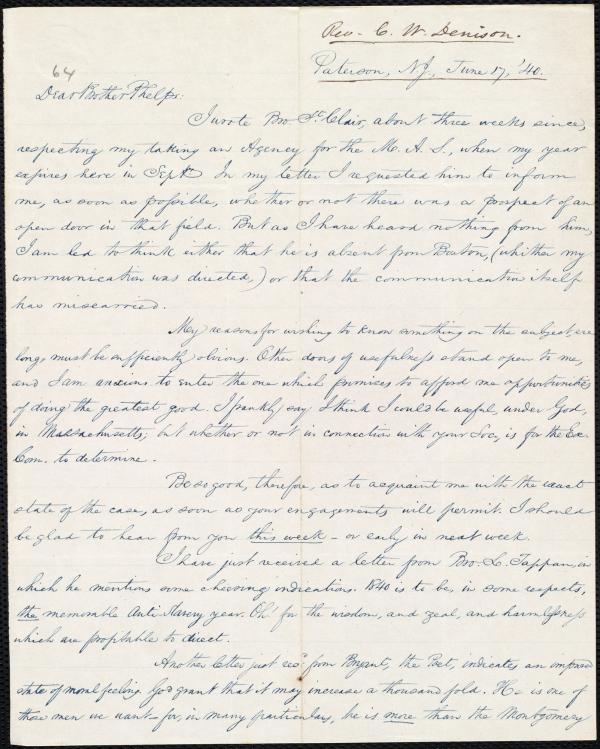 Rev. C. W. Denison.
64
Paterson, NJ., June 17, '40.
Dear Brother Phelps:
I wrote Bro. St. Clair, about three weeks since,
respecting my taking an Agency for the M. A. S., when my year
expires here in Septr. In my letter I requested him to inform
me, as soon as possible, whether or not there was a prospect of an
open door in that field. But as I have heard nothing from him,
I am led to think either that he is absent from Boston, (whither my
communication was directed,) or that the communication itself
has miscarried.
My reasons for wishing to know something on the subject, ere
long, must be sufficiently obvious. Other doors of usefulness stand open to me,
and I am anxious to enter the one which promises to afford me opportunities
of doing the greatest good. I frankly say, I think I could be useful, under God,
in Massachusetts; but whether or not in connection with your Soc, is for the Ex.
Com. to determine.
Be so good, therefore, as to acquaint me with the exact
state of the case, as soon as your engagements will permit. I should
be glad to hear from you this week - or early in next week.
I have just received a letter from Bro. L. Tappan, in
which he mentions some cheering indications. 1840 is to be, in some respects,
the memorable Anti Slavery year. Oh! for the wisdom, and zeal, and harmlessness
which are profitable to direct.
Another letter just recd. from Bryant, the Poet, indicates an improved
state of moral feeling. God grant that it may increase a thousand fold. He is one of
those men we want - for, in many particulars, he is more than the Montgomery